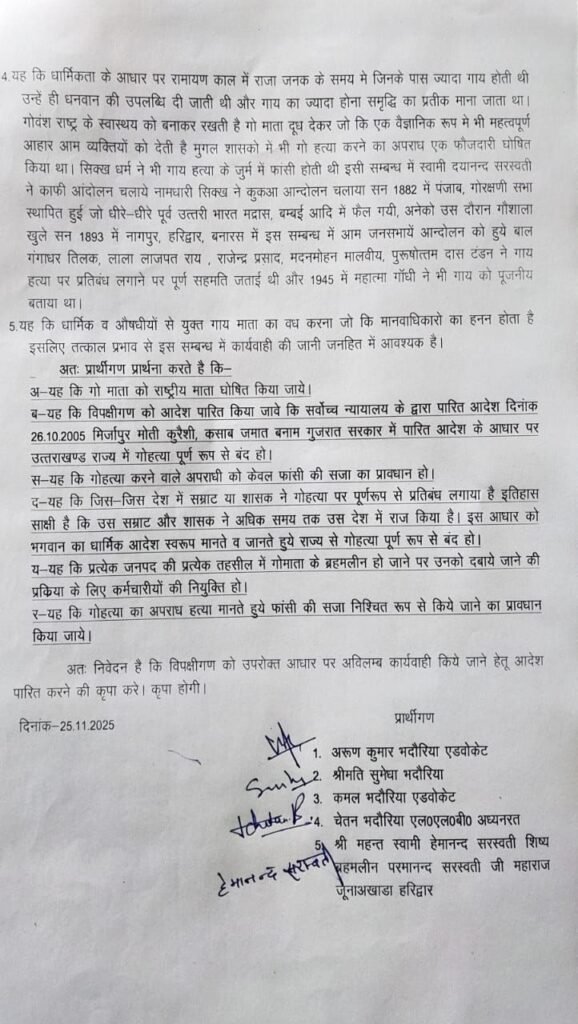 4.यह कि धार्मिकता के आधार पर रामायण काल में राजा जनक के समय मे जिनके पास ज्यादा गाय होती थी
उन्हें ही धनवान की उपलब्धि दी जाती थी और गाय का ज्यादा होना समृद्धि का प्रतीक माना जाता था।
गोवंश राष्ट्र के स्वास्थय को बनाकर रखती है गो माता दूध देकर जो कि एक वैज्ञानिक रूप मे भी महत्वपूर्ण
आहार आम व्यक्तियों को देती है मुगल शासको में भी गो हत्या करने का अपराध एक फौजदारी घोषित
किया था। सिक्ख धर्म ने भी गाय हत्या के जुर्म में फांसी होती थी इसी सम्बन्ध में स्वामी दयानन्द सरस्वती
ने काफी आंदोलन चलाये नामधारी सिक्ख ने कुकआ आन्दोलन चलाया सन 1882 में पंजाब, गोरक्षणी सभा
स्थापित हुई जो धीरे–धीरे पूर्व उत्तरी भारत मद्रास, बम्बई आदि में फैल गयी, अनेको उस दौरान गौशाला
खुले सन 1893 में नागपुर, हरिद्वार, बनारस में इस सम्बन्ध में आम जनसभायें आन्दोलन को हुये बाल
गंगाधर तिलक, लाला लाजपत राय , राजेन्द्र प्रसाद, मदनमोहन मालवीय, पुरूषोत्तम दास टंडन ने गाय
हत्या पर प्रतिबंध लगाने पर पूर्ण सहमति जताई थी और 1945 में महात्मा गाँधी ने भी गाय को पूजनीय
बताया था।
5.यह कि धार्मिक व औषधीयों से युक्त गाय माता का वध करना जो कि मानवाधिकारो का हनन होता है
इसलिए तत्काल प्रभाव से इस सम्बन्ध में कार्यवाही की जानी जनहित में आवश्यक है।
अतः प्रार्थीगण प्रार्थना करते है कि–
अ–यह कि गो माता को राष्ट्रीय माता घोषित किया जाये।
ब–यह कि विपक्षीगण को आदेश पारित किया जावे कि सर्वोच्च न्यायालय के द्वारा पारित आदेश दिनांक
26.10.2005 मिर्जापुर मोती कुरैशी, कसाब जमात बनाम गुजरात सरकार में पारित आदेश के आधार पर
उत्तराखण्ड राज्य में गोहत्या पूर्ण रूप से बंद हो।
स–यह कि गोहत्या करने वाले अपराधी को केवल फांसी की सजा का प्रावधान हो।
द–यह कि जिस–जिस देश में सम्राट या शासक ने गोहत्या पर पूर्णरूप से प्रतिबंध लगाया है इतिहास
साक्षी है कि उस सम्राट और शासक ने अधिक समय तक उस देश में राज किया है। इस आधार को
भगवान का धार्मिक आदेश स्वरूप मानते व जानते हुये राज्य से गोहत्या पूर्ण रूप से बंद हो।
य–यह कि प्रत्येक जनपद की प्रत्येक तहसील में गोमाता के ब्रहमलीन हो जाने पर उनको दबाये जाने की
प्रकिया के लिए कर्मचारीयों की नियुक्ति हो।
र–यह कि गोहत्या का अपराध हत्या मानते हुये फांसी की सजा निश्चित रूप से किये जाने का प्रावधान
किया जाये।
अतः निवेदन है कि विपक्षीगण को उपरोक्त आधार पर अविलम्ब कार्यवाही किये जाने हेतू आदेश
पारित करने की कृपा करे। कृपा होगी।
दिनांक–25.11.2025
प्रार्थीगण
1. अरूण कुमार भदौरिया एडवोकेट
2. श्रीमति सुमेघा भदौरिया
3. कमल भदौरिया एडवोकेट
4. चेतन भदौरिया एल0एल0बी0 अध्यनरत
5. श्री महन्त स्वामी हेमानन्द सरस्वती शिष्य
ब्रहमलीन परमानन्द सरस्वती जी महाराज
जूनाअखाडा हरिद्वार
हेमानन्द सरस्वती